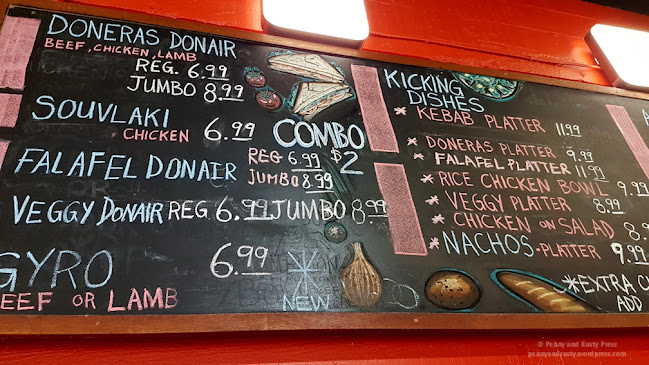 DONERAS DONAIR
BEEF, CHICKEN, LAMB
REG. 6.99
JUMBO 8.99
SOUVLAKI
CHICKEN 6.99
FALAFEL DONAIR REG 6.99
JUMBO 8.99
VEGGY DONAIR REG. 6.99 JUMBO 8.99
GYRO 6.99
BEEF OR LAMB
COMBO
$2
NEW
KICKING
DISHES
* KEBAB PLATTER 11.99
* DONERAS PLATTER 9.99
* FALAFEL PLATTER 11.99
* RICE CHICKEN BOWL 9.99
* VEGGY PLATTER 8.99
* CHICKEN ON SALAD
* NACHOS - PLATTER 9.99
*EXTRA
ADD
© Penny and Rusty Press
pennyandrusty.wordpress.com